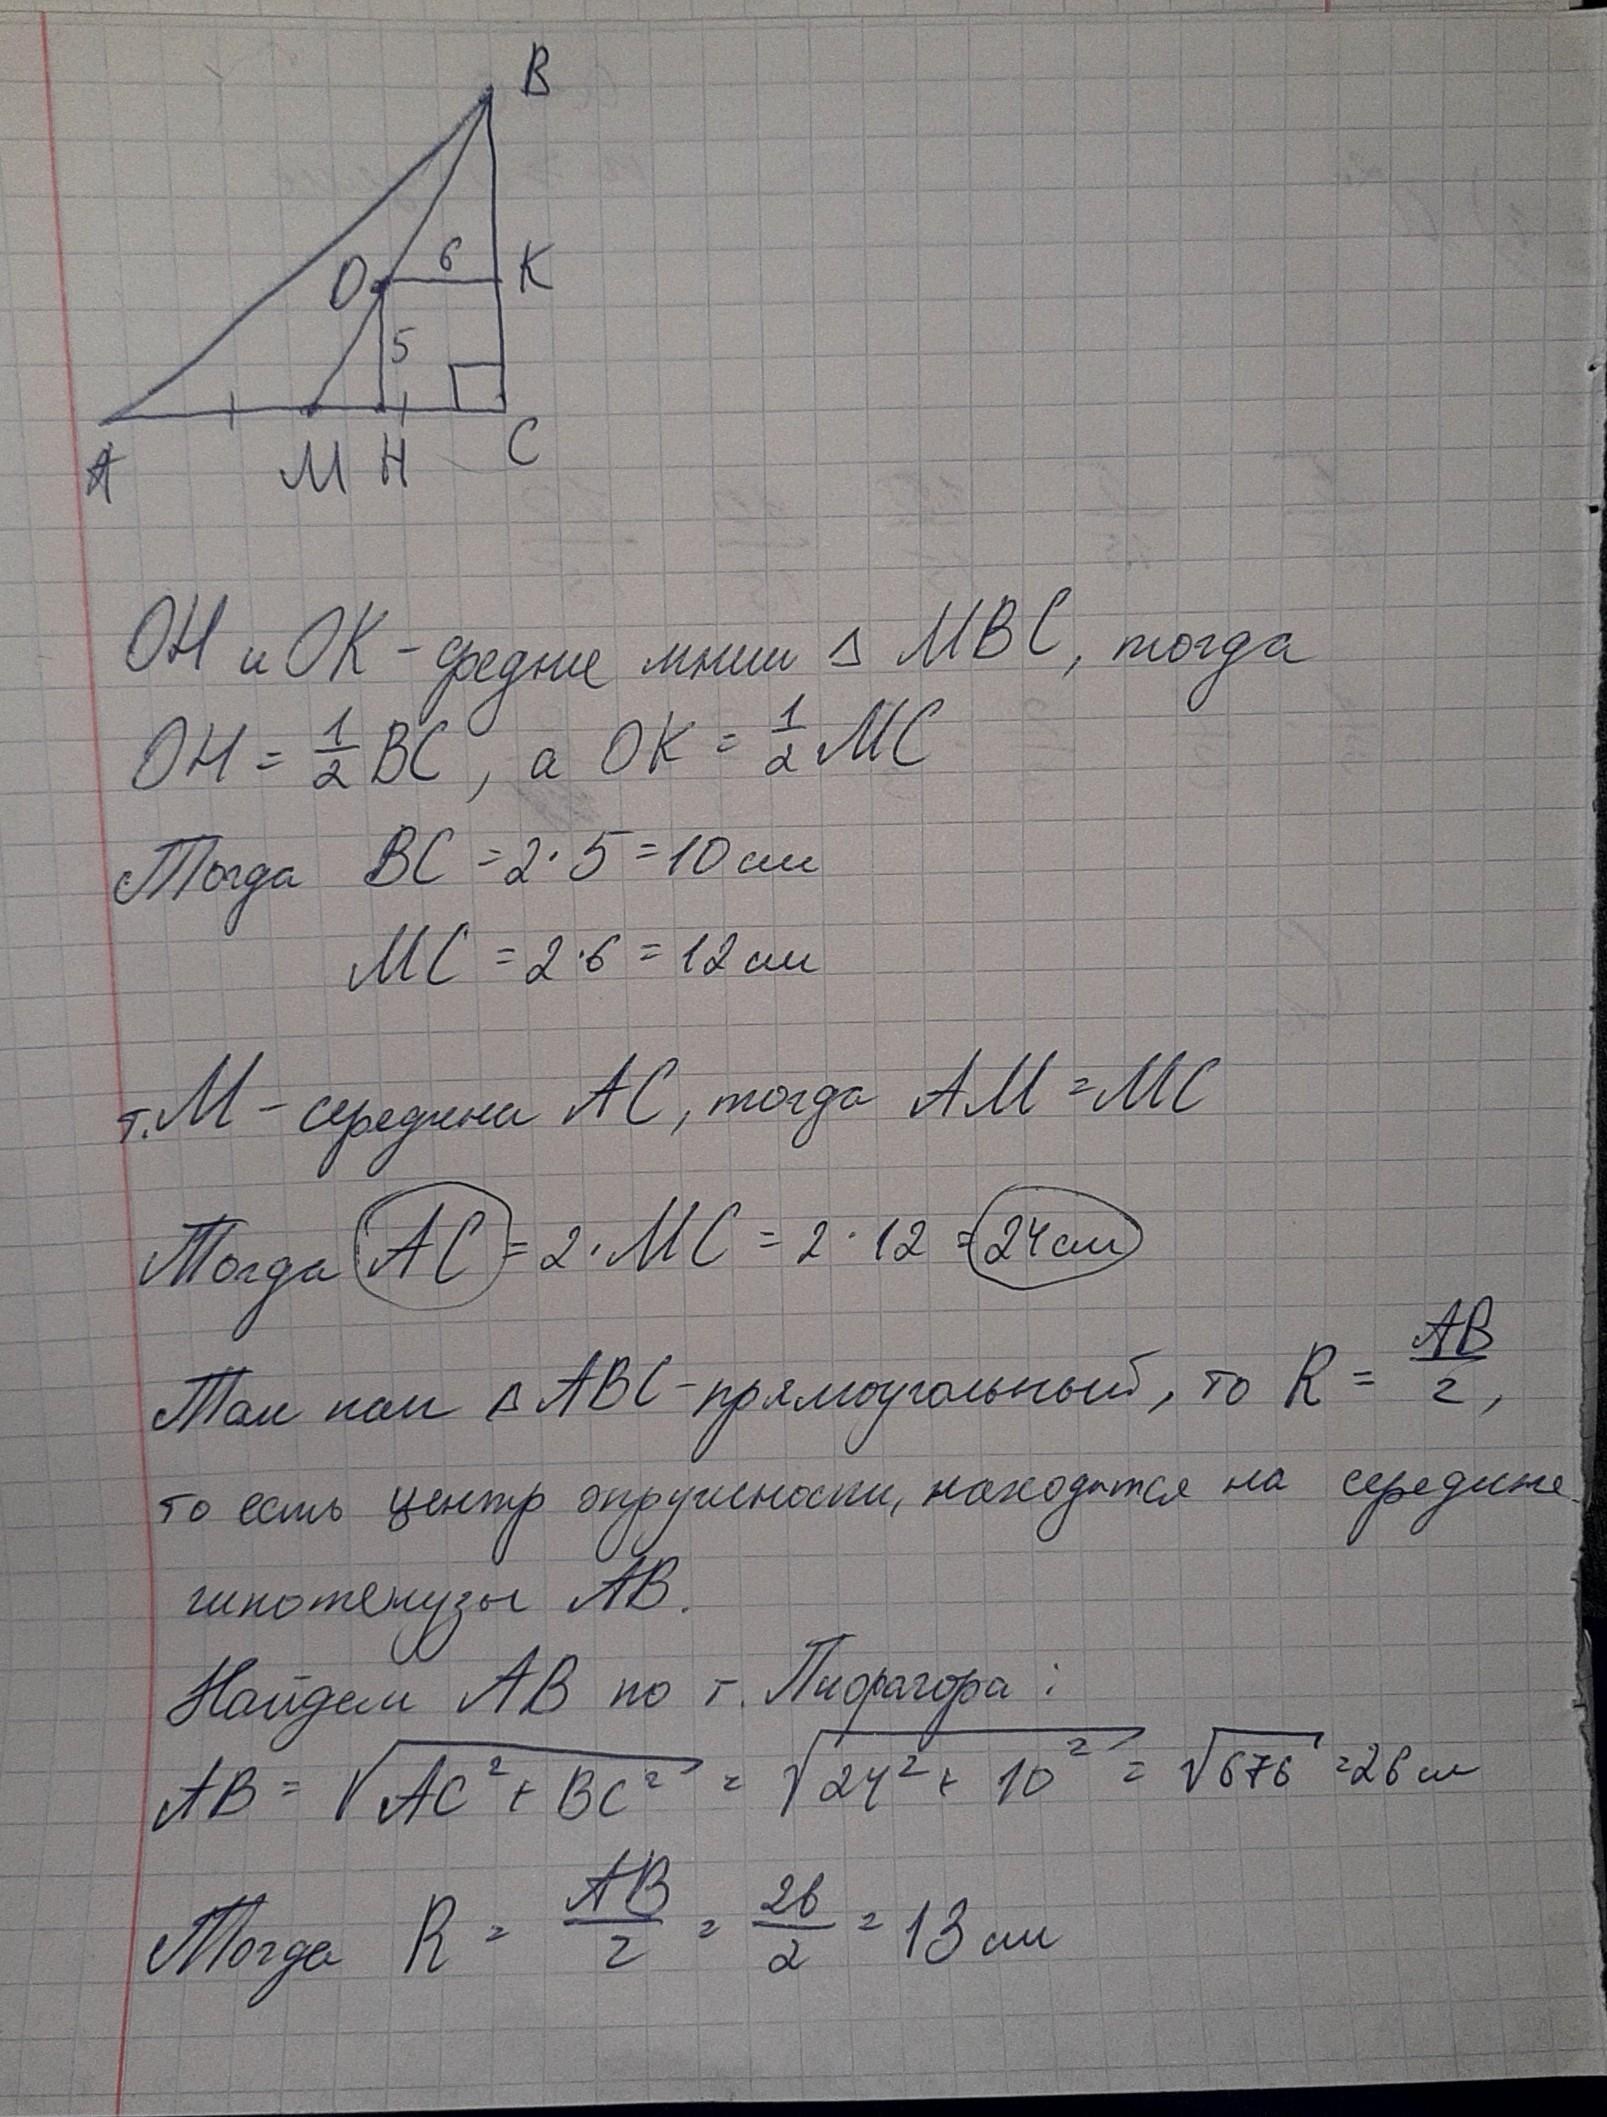 B
O 6 K
5
A M H C
OH и OK - средние линии △ MBC, тогда
OH = 1/2 BC, а OK = 1/2 MC
Тогда BC = 2·5 = 10 см
MC = 2·6 = 12 см
т. M - середина AC, тогда AM = MC
Тогда AC = 2·MC = 2·12 = 24 см
Так как △ ABC - прямоугольный, то R = AB/2,
то есть центр окружности, находится на середине
гипотенузы AB.
Найдем AB по т. Пифагора:
AB = √(AC² + BC²) = √(24² + 10²) = √676 = 26 см
Тогда R = AB/2 = 26/2 = 13 см